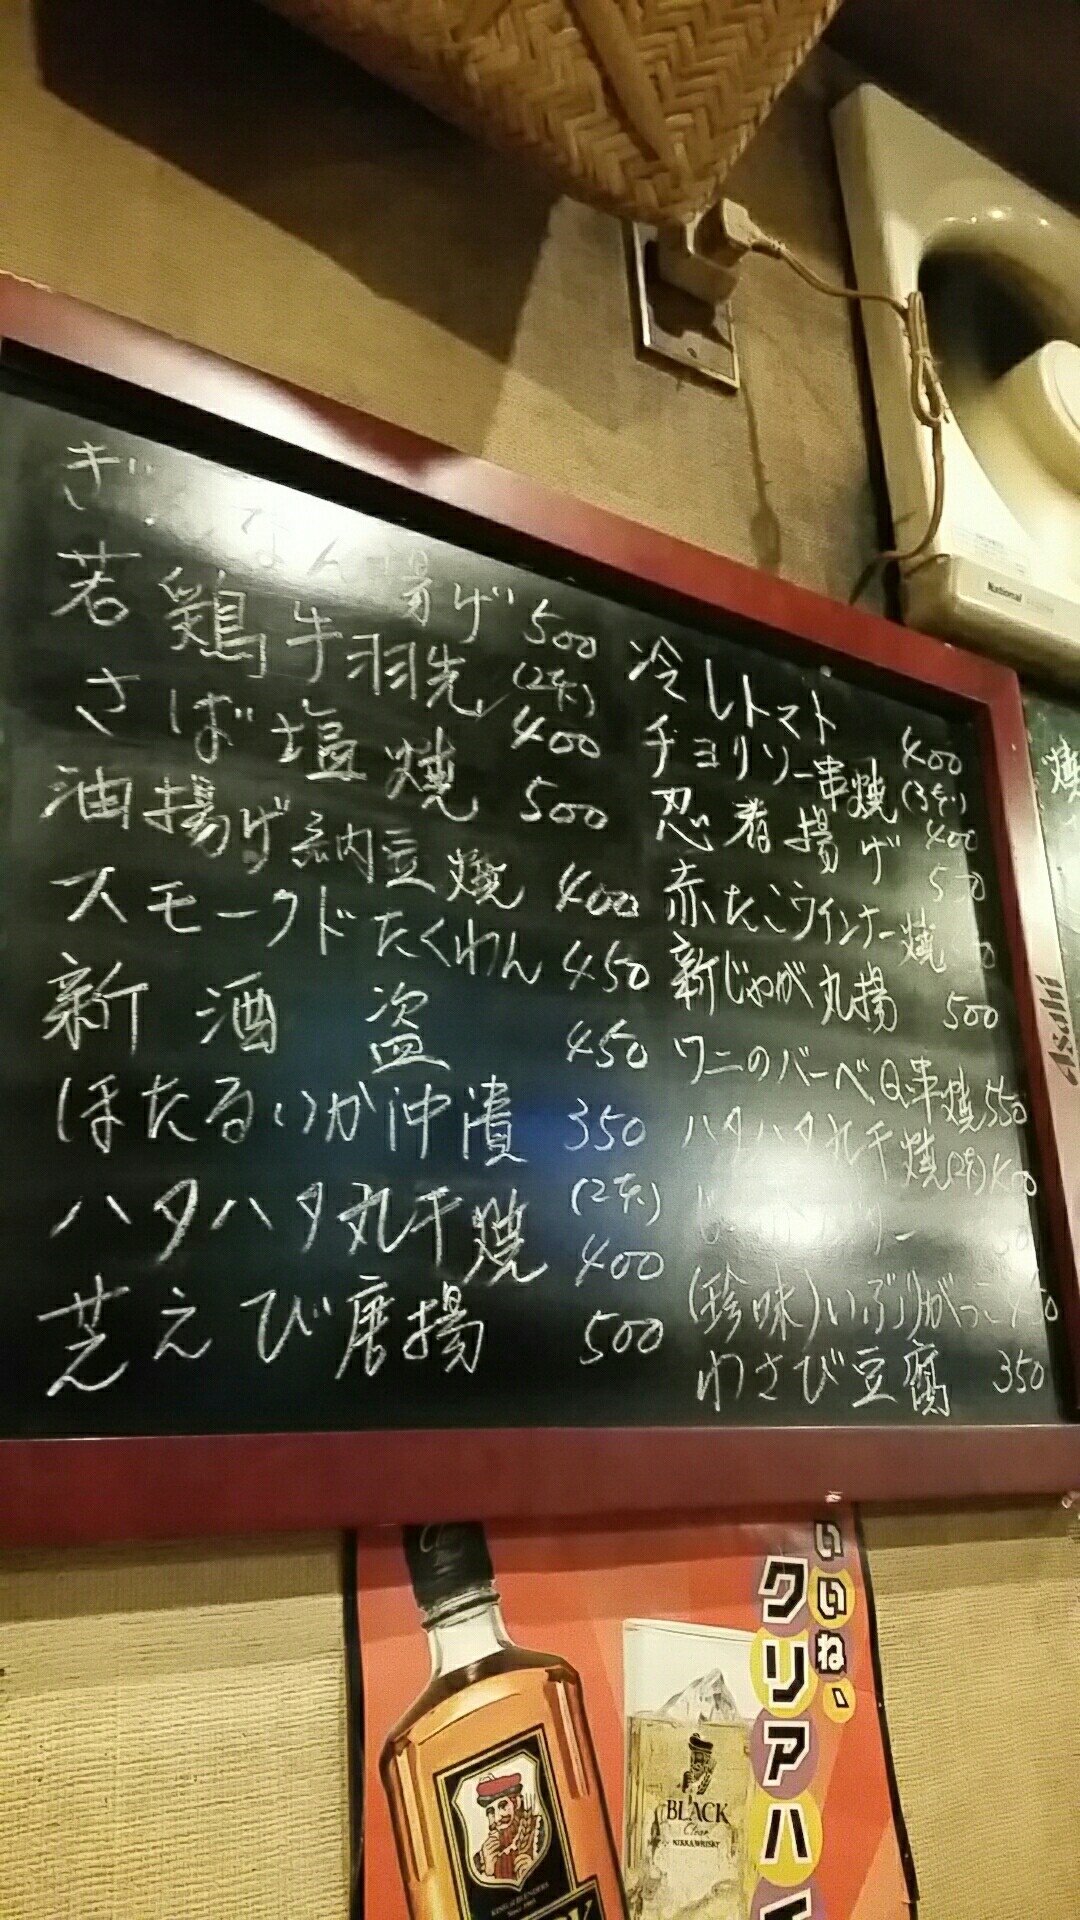 ぎんなん揚げ 500
若鶏手羽先(2本) 400
さば塩焼 500
油揚げ納豆焼 400
スモークドたくわん 450
新酒盗 450
ほたるいか沖漬 350
ハタハタ丸干焼(2本) 400
芝えび唐揚 500
冷しトマト 400
チョリソー串焼(3本) 400
忍者揚げ
赤たこウインナー焼
新じゃが丸揚 500
ワニのバーベQ串焼 550
ハタハタ丸干焼(2本) 400
(珍味)いぶりがっこ
わさび豆腐 350
National
焼
Asahi
いいね、
クリアハイ
BLACK
Clear
NIKKA WHISKY